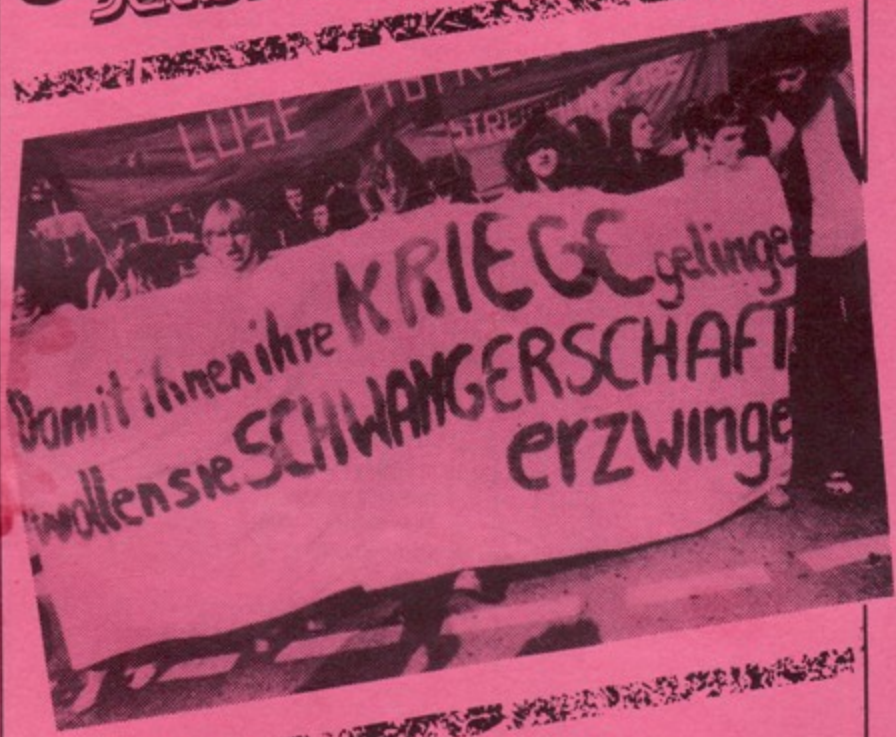 LOSE
Damit ihnen ihre KRIEGE gelinge
wollen sie SCHWANGERSCHAFT
erzwinge